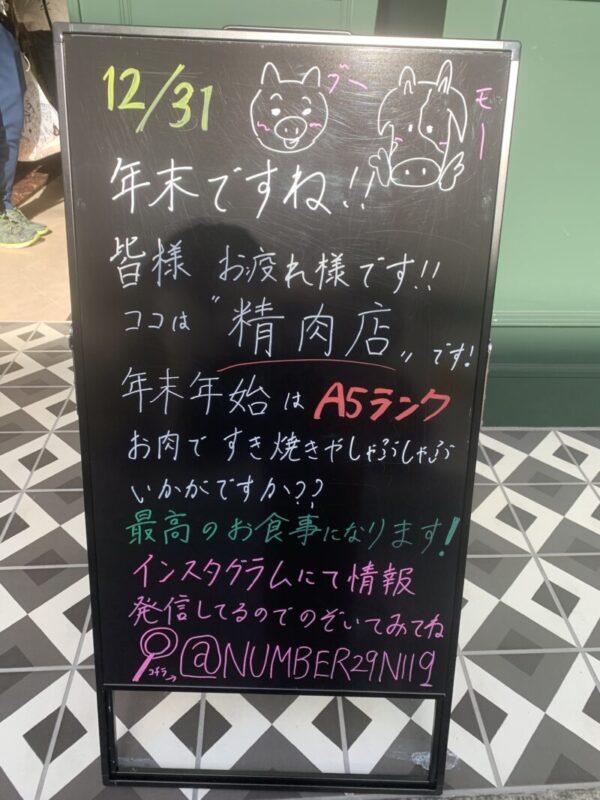 12/31
ブー
モー
年末ですね!!
皆様 お疲れ様です!!
ココは〝精肉店〟です!
年末年始は A5ランク
お肉で すき焼きやしゃぶしゃぶ
いかがですか??
最高のお食事になります!
インスタグラムにて情報
発信してるのでのぞいてみてね
コチラ→ @NUMBER29N119